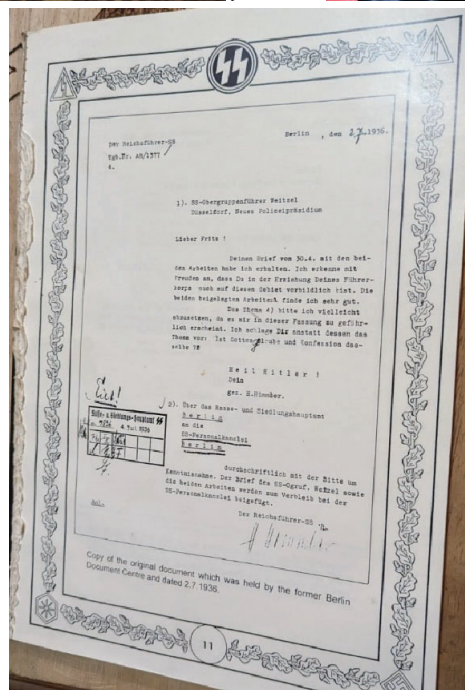 Der Reichsführer-SS
Tgb.Nr. AR/1377
Berlin , den 2.7.1936.
1). SS-Obergruppenführer Weitzel
Düsseldorf, Neues Polizeipräsidium
Lieber Fritz !
Deinen Brief vom 30.4. mit den bei-
den Arbeiten habe ich erhalten. Ich erkenne mit
Freuden an, dass Du in der Erziehung Deines Führer-
korps auch auf diesem Gebiet vorbildlich bist. Die
beiden beigelegten Arbeiten finde ich sehr gut.
Das Thema d) bitte ich vielleicht
abzusetzen, da es mir in dieser Fassung zu gefähr-
lich erscheint. Ich schlage Dir anstatt dessen das
Thema vor: Ist Gottesglaube und Confession das-
selbe ?
Heil Hitler !
Dein
gez. H.Himmler.
2). Über das Rasse- und Siedlungshauptamt
Berlin
an die
SS-Personalkanzlei
Berlin
Rasse- u. Siedlungs-Hauptamt SS
4. Juli 1936
durchschriftlich mit der Bitte um
Kenntnisnahme. Der Brief des SS-Ogruf. Weitzel sowie
die beiden Arbeiten werden zum Verbleib bei der
SS-Personalkanzlei beigefügt.
Der Reichsführer-SS
H Himmler
Copy of the original document which was held by the former Berlin
Document Centre and dated 2.7.1936.
11